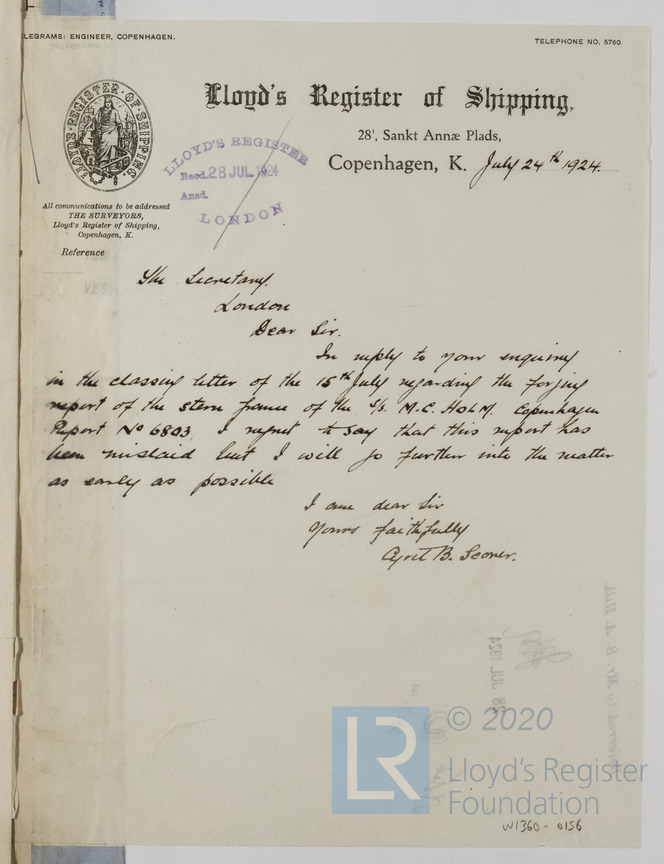 LEGRAMS: ENGINEER, COPENHAGEN.
TELEPHONE NO. 5760
LLOYD'S REGISTER OF SHIPPING.
Lloyd's Register of Shipping,
28', Sankt Annæ Plads,
Copenhagen, K. July 24th 1924.
LLOYD'S REGISTER
Recd. 28 JUL 1924
Ansd.
LONDON
All communications to be addressed
THE SURVEYORS,
Lloyd's Register of Shipping,
Copenhagen, K.
Reference
The Secretary.
London
Dear Sir.
In reply to your enquiry
in the classing letter of the 15th July regarding the forging
report of the stern frame of the S/S. M.C. HOLM. Copenhagen
Report No 6803, I regret to say that this report has
been mislaid but I will go further into the matter
as early as possible
I am dear Sir
Yours faithfully
B.
28 JUL 1924
LR
© 2020
Lloyd's Register
Foundation
W1360 - 0156